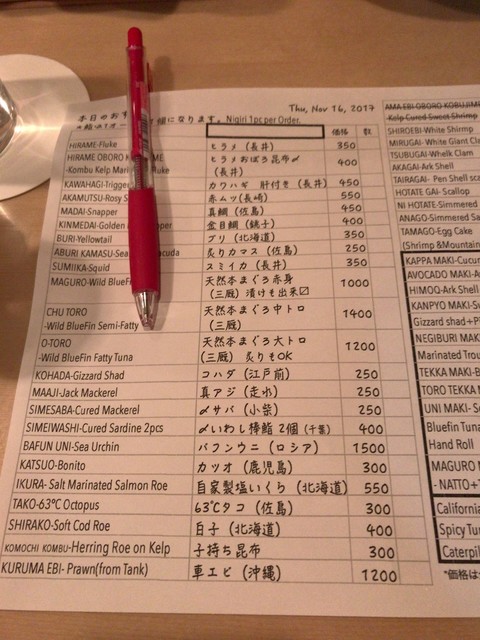 Thu, Nov 16, 2017
本日のおす
個になります。 Nigiri 1pc per Order.
価格 数
HIRAME-Fluke ヒラメ (長井) 350
HIRAME OBORO ヒラメおぼろ昆布〆
-Kombu Kelp Mari (長井) 400
KAWAHAGI-Trigger カワハギ 肝付き (長井) 450
AKAMUTSU-Rosy S 赤ムツ(長崎) 550
MADAI-Snapper 真鯛 (佐島) 450
KINMEDAI-Golden 金目鯛 (銚子) 400
BURI-Yellowtail ブリ (北海道) 350
ABURI KAMASU-Sea acuda 炙りカマス (佐島) 250
SUMIIKA-Squid スミイカ (長井) 350
MAGURO-Wild BlueFin 天然本まぐろ赤身
(三厩) 漬けも出来〼 1000
CHU TORO 天然本まぐろ中トロ
-Wild BlueFin Semi-Fatty (三厩) 1400
O-TORO 天然本まぐろ大トロ
-Wild BlueFin Fatty Tuna (三厩) 炙りもOK 1200
KOHADA-Gizzard Shad コハダ (江戸前) 250
MAAJI-Jack Mackerel 真アジ (走水) 250
SIMESABA-Cured Mackerel 〆サバ (小柴) 250
SIMEIWASHI-Cured Sardine 2pcs 〆いわし棒鮨 2個 (千葉) 400
BAFUN UNI-Sea Urchin バフンウニ (ロシア) 1500
KATSUO-Bonito カツオ (鹿児島) 300
IKURA- Salt Marinated Salmon Roe 自家製塩いくら (北海道) 550
TAKO-63℃ Octopus 63℃タコ (佐島) 300
SHIRAKO-Soft Cod Roe 白子 (北海道) 400
KOMOCHI KOMBU-Herring Roe on Kelp 子持ち昆布 300
KURUMA EBI- Prawn(from Tank) 車エビ (沖縄) 1200
AMA EBI OBORO KOBUJIME
-Kelp Cured Sweet Shrimp
SHIROEBI-White Shirmp
MIRUGAI- White Giant Cla
TSUBUGAI-Whelk Clam
AKAGAI-Ark Shell
TAIRAGAI- Pen Shell sca
HOTATE GAI- Scallop
NI HOTATE-Simmered
ANAGO-Simmered Sa
TAMAGO-Egg Cake
(Shrimp &Mountain
KAPPA MAKI-Cucu
AVOCADO MAKI-A
HIMOQ-Ark Shell
KANPYO MAKI-S
Gizzard shad+P
NEGIBURI MAKI
Marinated Trou
TEKKA MAKI-B
TORO TEKKA M
UNI MAKI- Se
Bluefin Tuna
Hand Roll
MAGURO N
- NATTO+T
California
Spicy Tun
Caterpil
*価格は